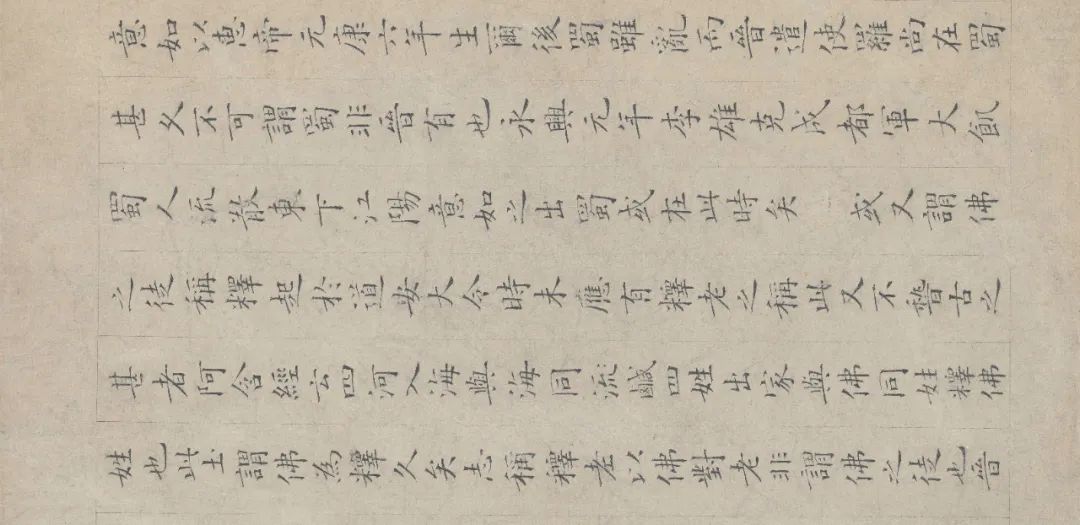 意如以惠帝元康六年生爾後蜀雖亂而晉遣使羅尚在蜀
甚久不可謂蜀非晉有也永興元年李雄克成都軍大飢
蜀人流散東下江陽意如之出蜀或在此時矣　或又謂佛
之徒稱釋起於道安大令時未應有釋老之稱此又不稽古之
甚者阿含經云四河入海與海同流鹹四姓出家與佛同姓釋佛
姓也此土謂佛為釋久矣志稱釋老以佛對老非謂佛之徒也晉